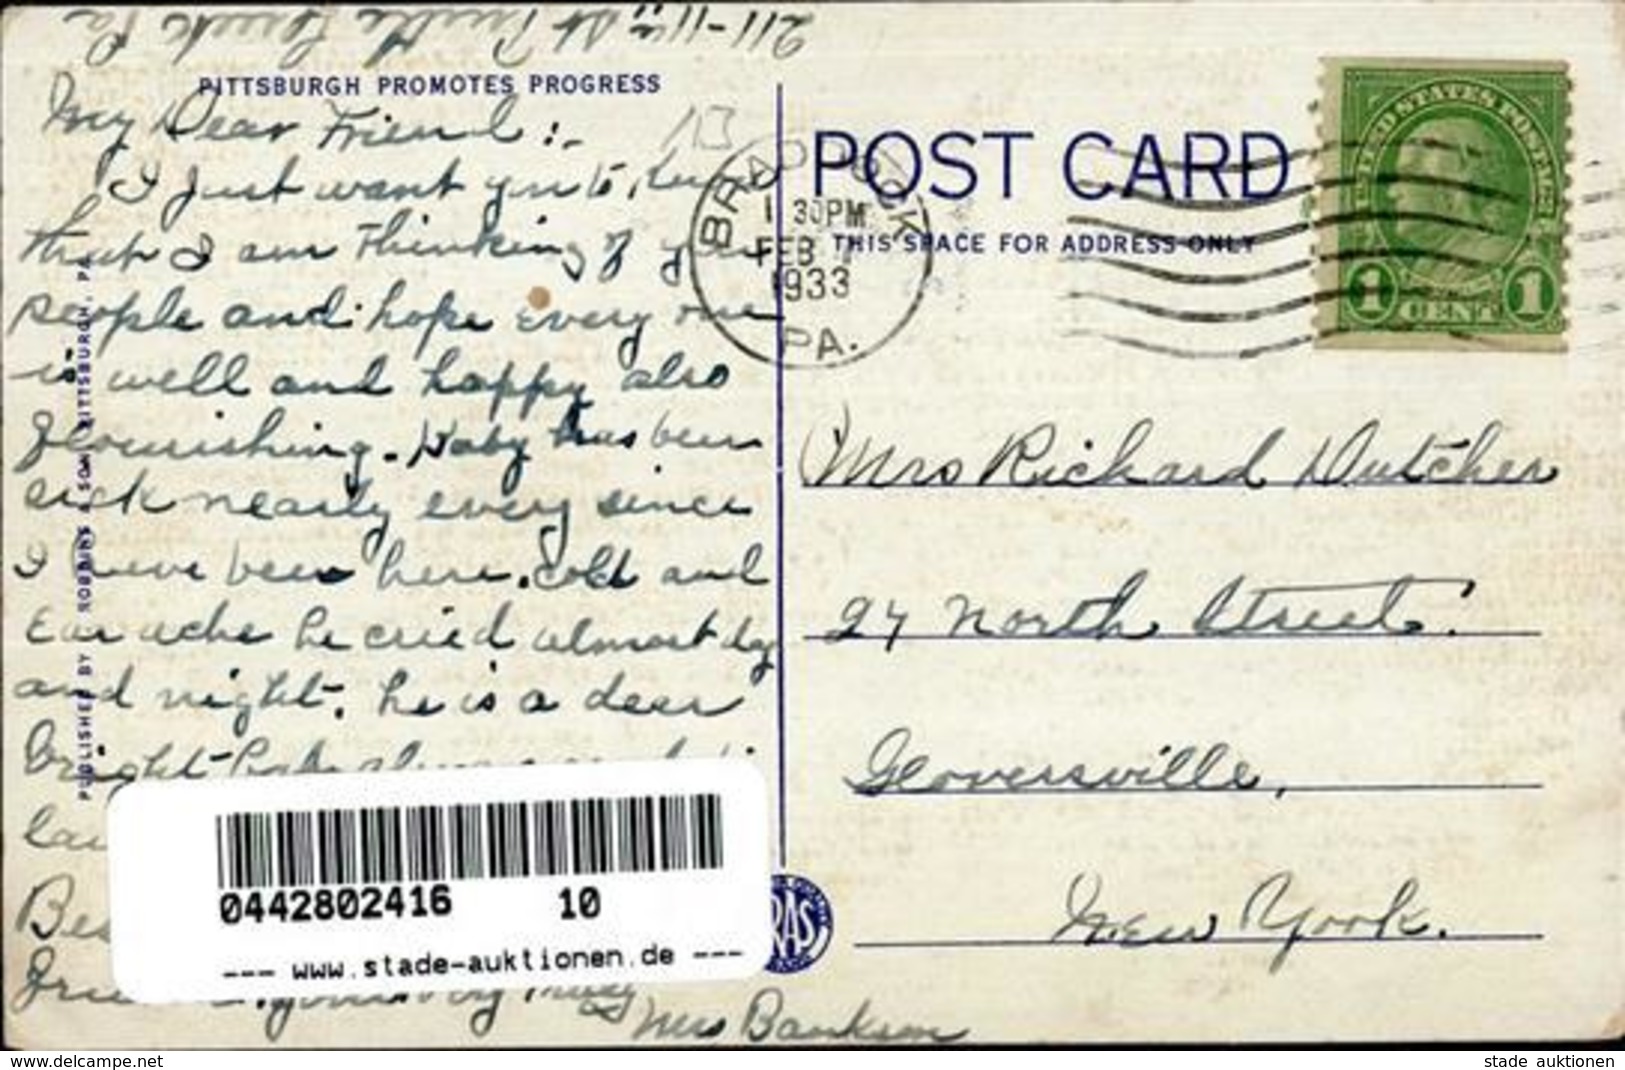 211-11th St Turtle Creek Pa
PITTSBURGH PROMOTES PROGRESS
My Dear Friend:-
I just want you to know
that I am thinking of you
people and hope every one
is well and happy also
flourishing. Baby has been
sick nearly every since
I have been here. Cold and
Ear ache he cried almost day
and night. he is a dear
bright baby always
Bes
Frie yours very truly
Mrs Bankson
PUBLISHED BY ROBBINS & SON PITTSBURGH, PA.
BRADDOCK
1 30PM
FEB
1933
PA.
POST CARD
THIS SPACE FOR ADDRESS ONLY
UNITED STATES POSTAGE
1 CENT 1
Mrs Richard Dutcher
27 North Street.
Gloversville,
New York.
0442802416 10
--- www.stade-auktionen.de ---
www.delcampe.net
stade auktionen